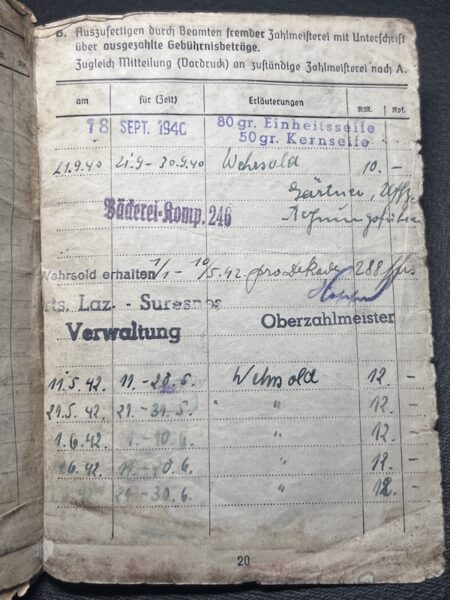 B. Auszufertigen durch Beamten fremder Zahlmeisterei mit Unterschrift
über ausgezahlte Gebührnisbeträge.
Zugleich Mitteilung (Vordruck) an zuständige Zahlmeisterei nach A.
am für (Zeit) Erläuterungen RM. Rpf.
18 SEPT. 1940 80 gr. Einheitsseife
50 gr. Kernseife
21.9.40 21.9 - 30.9.40 Wehrsold 10. -
Gärtner, Uffz.
Bäckerei-Komp. 246
Rechnungsführer
Wehrsold erhalten 1/1 - 10/5.42. pro Dekade 288 ffrs
rts. Laz. - Suresnes
Verwaltung Oberzahlmeister
11.5.42. 11. - 20.5. Wehrsold 12. -
21.5.42. 21. - 31.5. " 12. -
1.6.42. 1. - 10.6. " 12. -
.6.42. 11. - 20.6. " 12. -
21. - 30.6. " 12. -
20